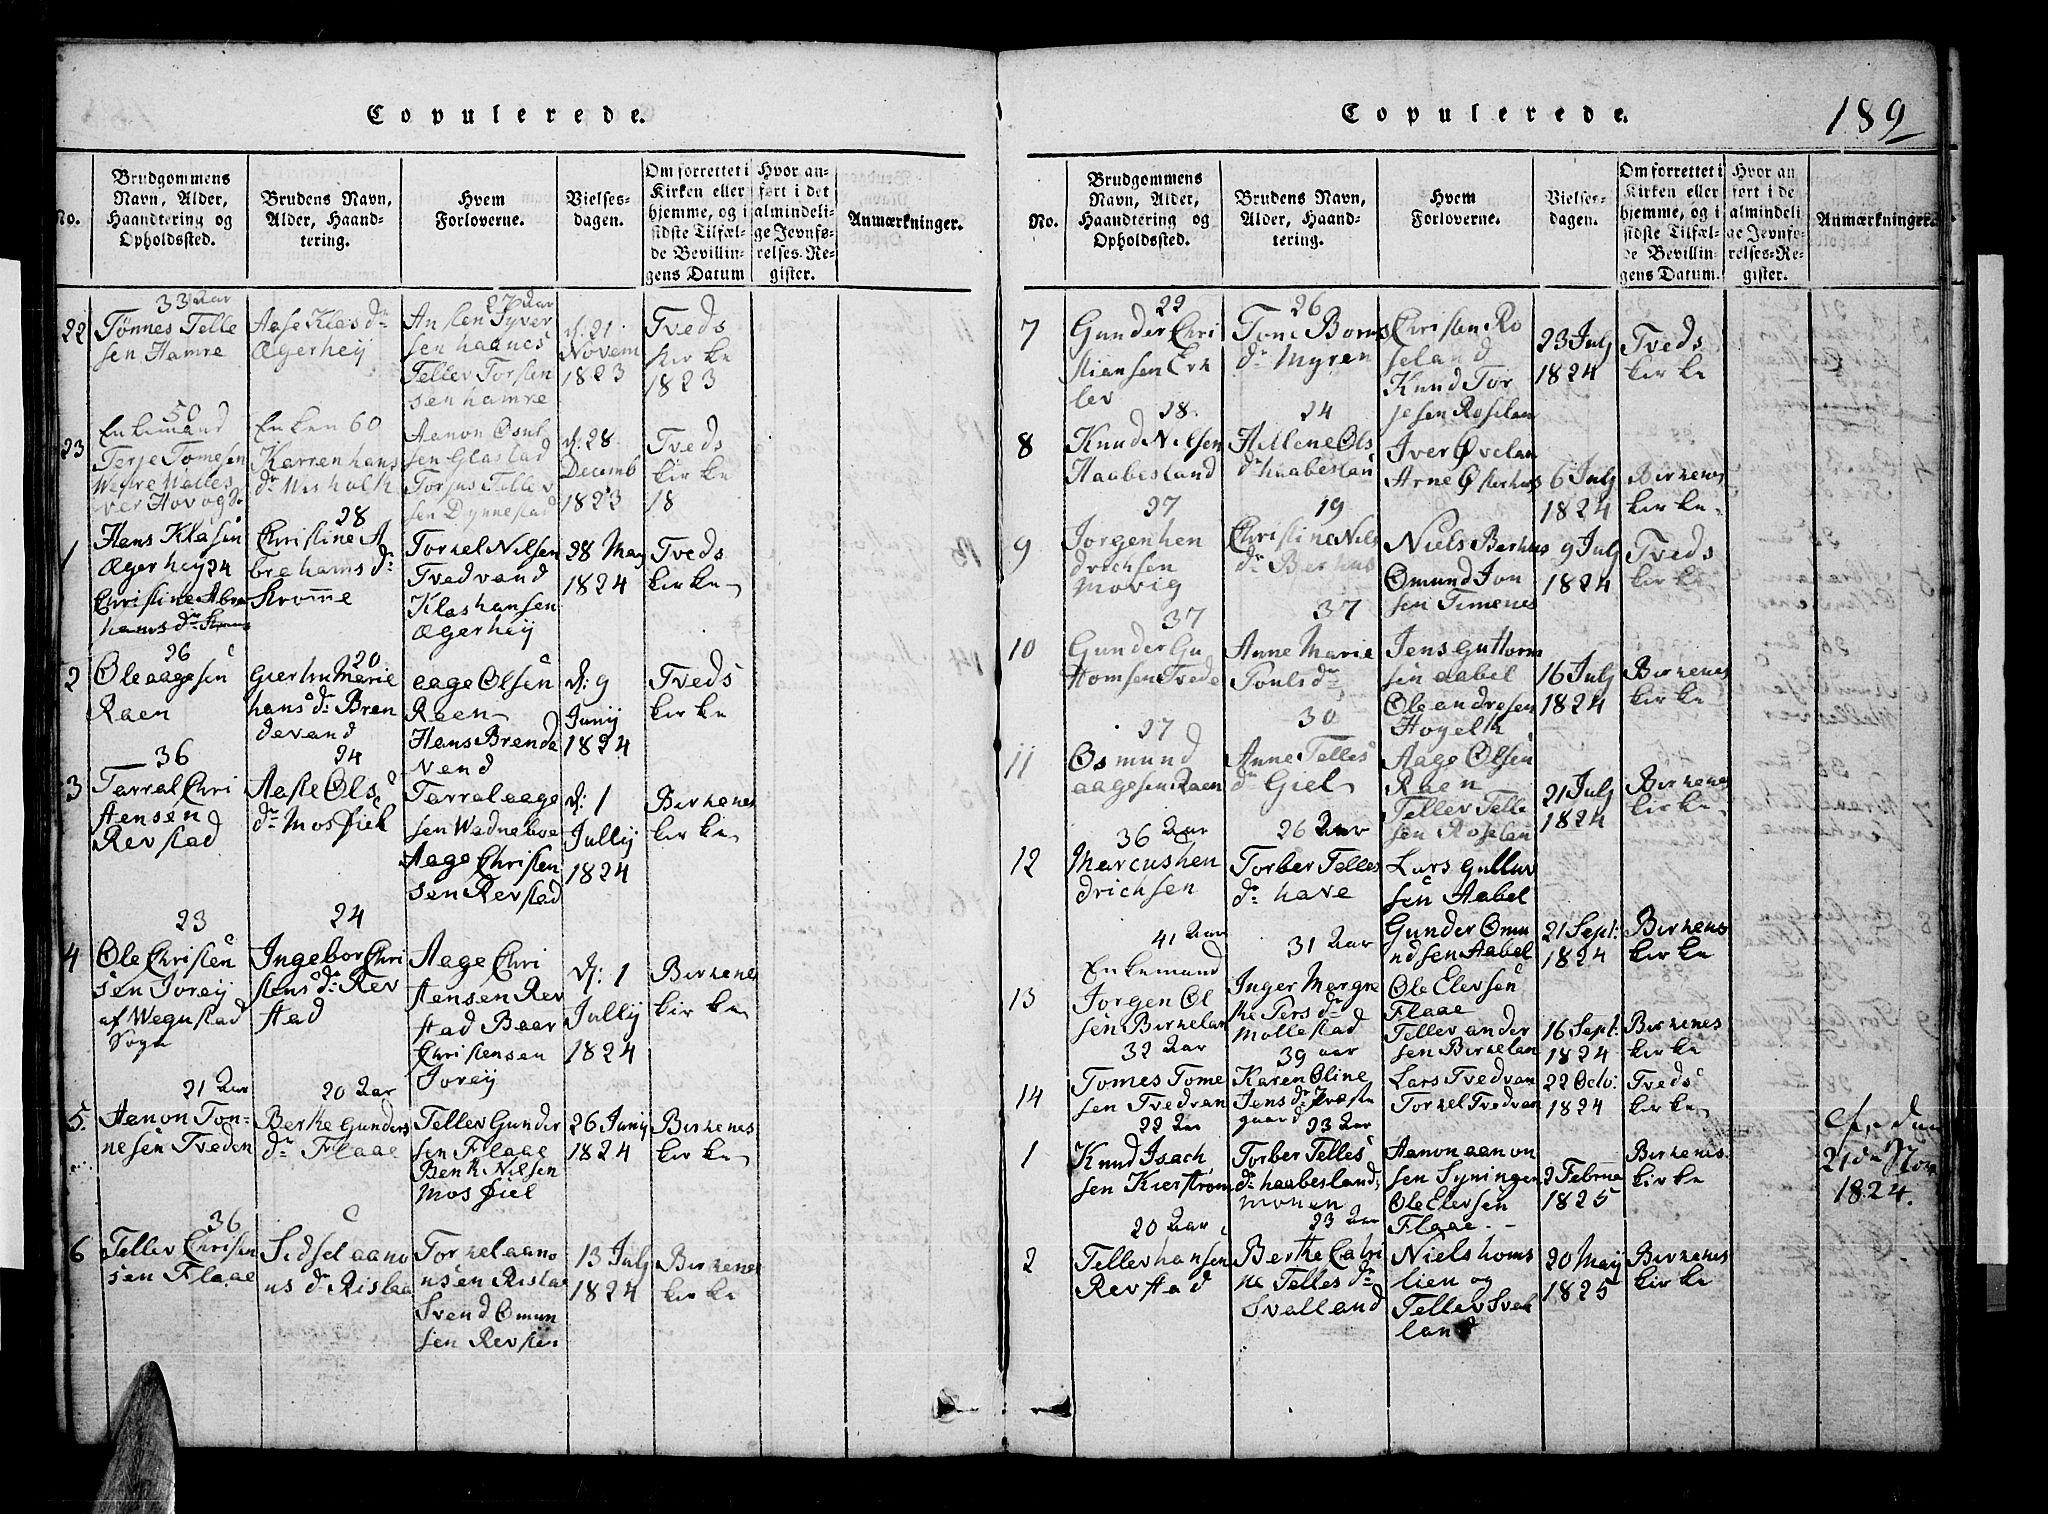 Copulerede.
No.
Brudgommens Navn, Alder, Haandtering og Opholdssted.
Brudens Navn, Alder, Haandtering.
Hvem Forloverne.
Vielsesdagen.
Om forrettet i Kirken eller hjemme, og i sidste Tilfælde Bevillingens Datum
Hvor anført i det almindelige Jevnførelses-Register.
Anmærkninger.
22
33 Aar
Tønnes Telle
sen Hamre
Aase Klas dr
Ægerhey
27 Aar
Ansten Syver
sen haanes
Tellev Torsten
sen hamre
d: 21
Novem
1823
Tveds
Kirke
1823
23
50
Enkemand
Terje Tomesen
Enken 60
Karren hans
Aanon
sen Glastad
Torjus Tellev
sen Dynnestad
d: 28
Decemb
1823
Tveds
kirke
18
1
Hans Klasen
Ægerhey 24
Christine Abra
hams dr
28
Christine A
brahams dr
Stromme
Torkel Nilsen
Tvedvand
Klas hansen
Ægerhey
28 May
1824
Tveds
kirke
2
26
Ole aagesen
Raen
20
Marie
hans dr Bren
devand
aage Olsen
Raen
Hans Brende
d: 9
Junij
1824
Tveds
kirke
3
36
Tarral Chri
stensen
Revstad
24
Aaste Ols
dr Mosfiel
Tarral aage
sen
Aage Christen
sen Revstad
d: 1
Jullij
1824
Birkenes
kirke
4
23
Ole Christen
sen Jorey
af Wegustad
Sogn
24
Ingebor Chri
stens dr Rev
stad
Aage Chri
stensen Rev
stad Baar
Christensen
Jorey
d: 1
Jullij
1824
Birkenes
kirke
5.
21 Aar
Aanon Ton-
nesen Tveden
20 Aar
Berthe Gunders
dr Flaae
Tellev Gunder
sen Flaae
Bent Nilsen
Mosfiel
26 Junij
1824
Birkenes
kirke
6
36
Tellev Chrisen
sen Flaae
Sidsel aano
ns dr Rislaa
Torkel aano
nsen Rislaa
Svend Omun
sen
13 July
1824
Birkenes
kirke
Copulerede.
189
No.
Brudgommens Navn, Alder, Haandtering og Opholdssted.
Brudens Navn, Alder, Haandtering.
Hvem Forloverne.
Vielsesdagen.
Om forrettet i Kirken eller hjemme, og i sidste Tilfælde Bevillingens Datum.
Hvor an
Anmærkninger.
7
22
Gunder Chri
stiansen Erk
lev
26
Tone
dr Myren
Christen Ro
seland
Knud Tor
jesen Roselan
23 July
1824
Tveds
kirke
8
28
Knud Nilsen
Haabesland
24
Hellene Ols
dr haabeslan
Iver Øvelan
Arne
6 July
1824
Birkenes
kirke
9
27
Jorgen hen
drichsen
Movig
19
Christine Nils
dr Berhus
Niels Berhus
Omund Jon
sen Timenes
9 July
1824
Tveds
kirke
10
37
Gunder Gu
ttomsen Tvede
37
Anne Marie
Pouls dr
Jens Guttorm
sen aabel
Ole andresen
16 July
1824
Birkenes
kirke
11
27
Osmund
aagesen Raen
30
Anne Telles
dr Giel
Aage Olsen
Raen
Tellev Telle
sen Roselan
21 July
1824
Birkenes
kirke
12
36 Aar
Marcus hen
drichsen
26 Aar
Torber Telles
dr have
Lars
sen Aabel
Gunder Omu
ndsen Aabel
21 Sept:
1824
Birkenes
kirke
13
41 Aar
Enkemand
Jorgen Ol
sen Birkelan
31 Aar
Inger Margre
the Pers dr
Mollestad
Ole Elevsen
Flaae
Tellev ander
sen Birkelan
16 Sept:
1824
Birkenes
kirke
14
32 Aar
Tomes Tome
sen Tvedvan
39 aar
Karen Oline
Jens dr Præste
gaard
Lars Tvedvan
Torkel Tvedvan
22 Octo:
1824
Tveds
kirke
21 de Nov
1824.
1
22 Aar
Knud Isach
sen Kierstrom
23 Aar
Torber Telles
dr haabesland,
monen
Aanon aanon
sen Syningen
Ole Elevsen
Flaae.
2 Februa
1825
Birkenes
kirke
2
20 Aar
Tellev hansen
Revstad
23 Aar
Berthe Cathri
ne Telles dr
Svalland
Niels homs
lien og
Tellev Sval
land
20 May
1825
Birkenes
kirke